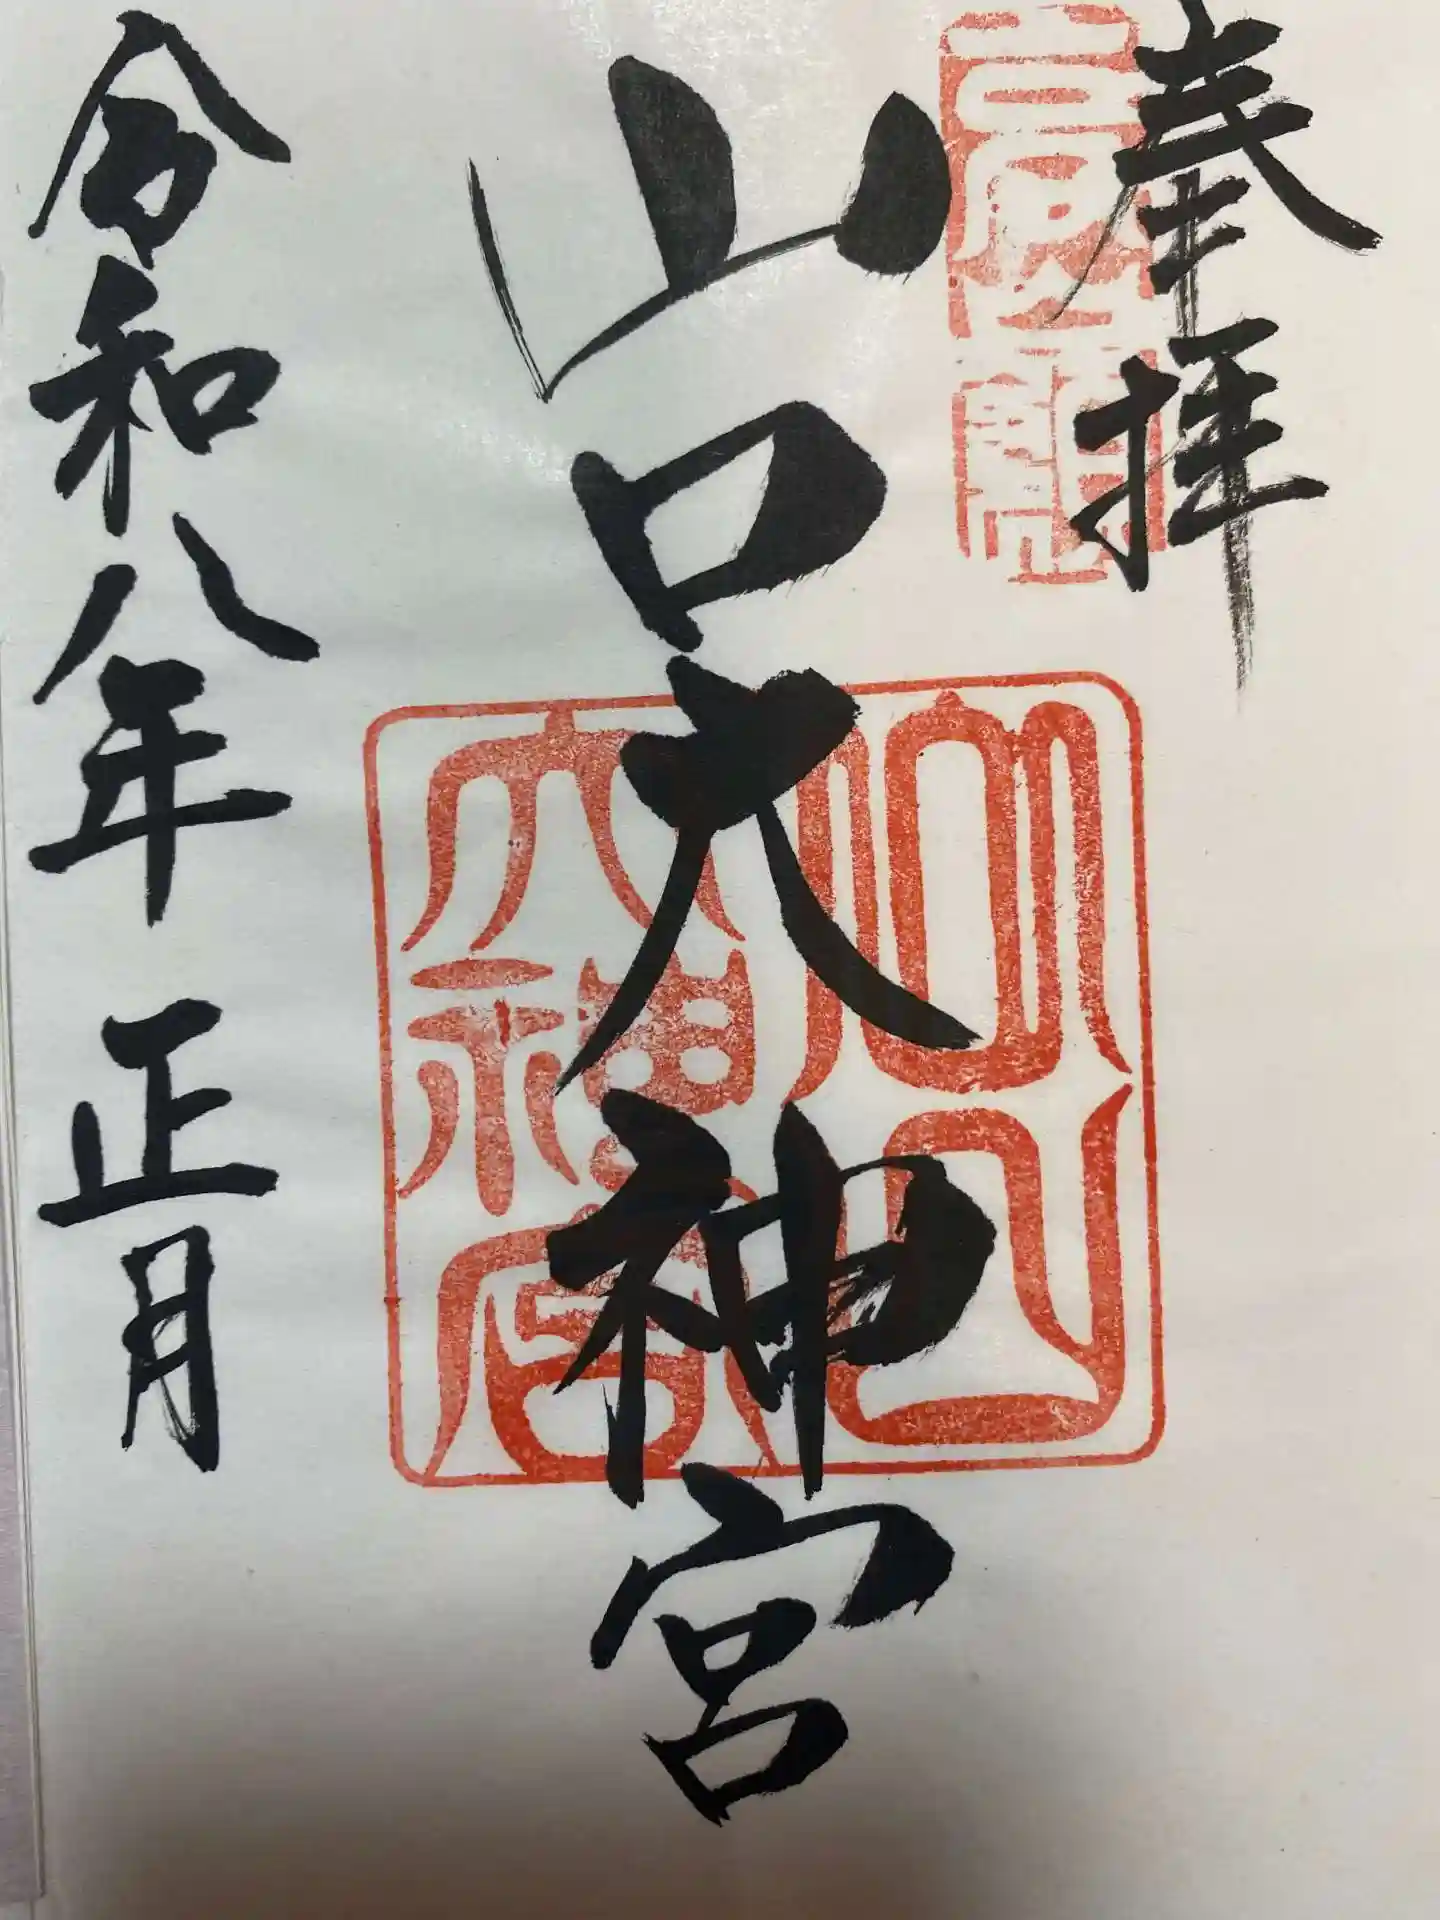 奉拝
山口大神宮
山口
大神宮
令和八年正月